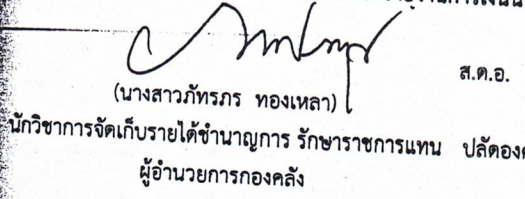 ส.ต.อ.
(นางสาวภัทรภร ทองเหลา)
นักวิชาการจัดเก็บรายได้ชำนาญการ รักษาราชการแทน ปลัดอง
ผู้อำนวยการกองคลัง